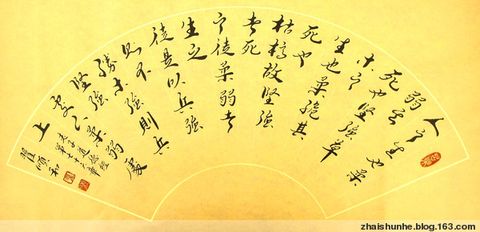 人之生也柔
弱其
死也堅強草
木之
生也柔脆其
死也
枯槁故堅強
者死
之徒柔弱者
生之
徒是以兵強
則不
勝木強則兵
堅強
處下柔弱處
上
老子道德經
第七十六章
翟順和
zhaishunhe.blog.163.com